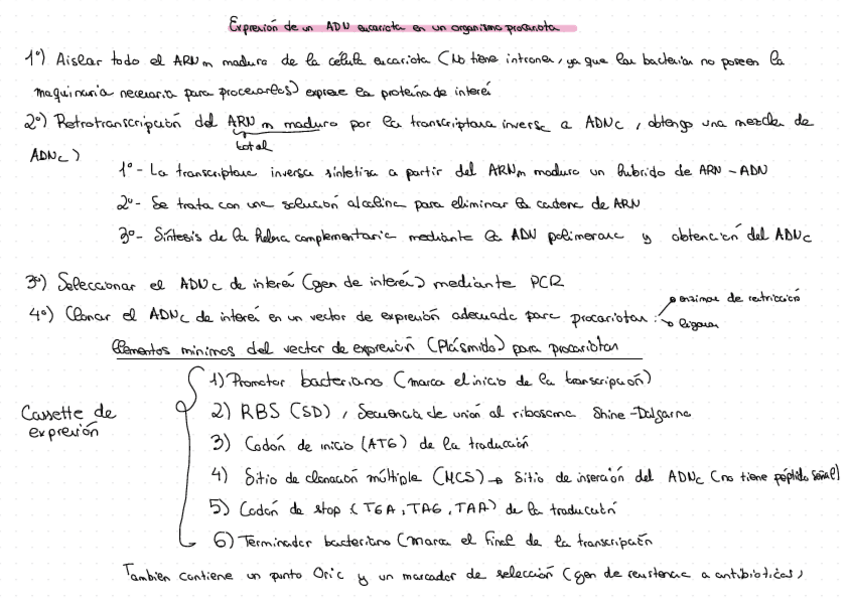 Expresión de un ADN eucariota en un organismo procariota
1º) Aislar todo el ARNm maduro de la célula eucariota (No tiene intrones, ya que las bacterias no poseen la
maquinaria necesaria para procesarlos) exprese la proteína de interés
2º) Retrotranscripción del ARNm maduro por la transcriptasa inversa a ADNc, obtengo una mezcla de
total
ADNc)
1º- La transcriptasa inversa sintetiza a partir del ARNm maduro un híbrido de ARN-ADN
2º- Se trata con una solución alcalina para eliminar la cadena de ARN
3º- Síntesis de la hebra complementaria mediante la ADN polimerasa y obtención del ADNc
3º) Seleccionar el ADNc de interés (gen de interés) mediante PCR
→ enzimas de restricción
4º) Clonar el ADNc de interés en un vector de expresión adecuado para procariotas: → ligasas
Elementos mínimos del vector de expresión (Plásmido) para procariotas
1) Promotor bacteriano (marca el inicio de la transcripción)
Cassette de
expresión
2) RBS (SD), Secuencia de unión al ribosoma Shine-Dalgarno
3) Codón de inicio (ATG) de la traducción
4) Sitio de clonación múltiple (MCS) → Sitio de inserción del ADNc (no tiene péptido señal)
5) Codón de stop (TGA, TAG, TAA) de la traducción
6) Terminador bacteriano (Marca el final de la transcripción
También contiene un punto Oric y un marcador de selección (gen de resistencia a antibióticos)